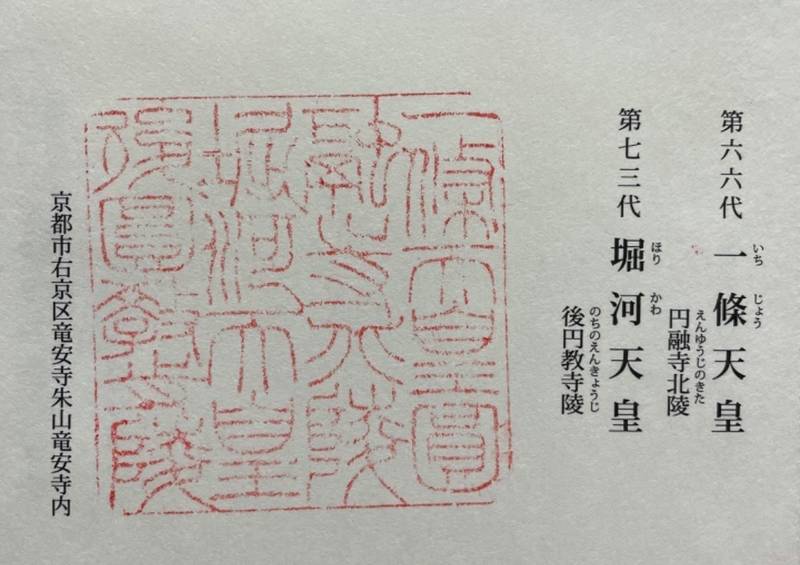 いち じょう
第六六代 一條天皇
えんゆうじのきた
円融寺北陵
ほり かわ
第七三代 堀河天皇
のちのえんきょうじ
後円教寺陵
一條天皇圓
融寺北陵
堀河天皇
後圓教寺陵
京都市右京区竜安寺朱山竜安寺内